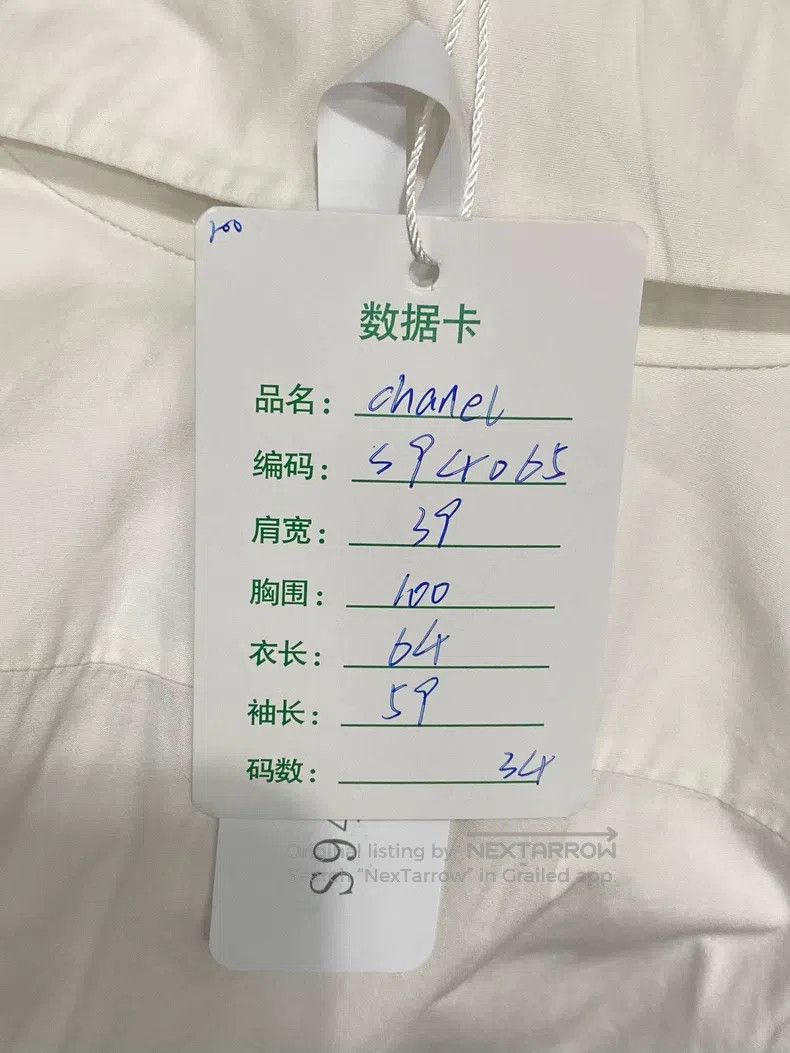 200
数据卡
品名: chanel
编码: S94065
肩宽: 39
胸围: 100
衣长: 64
袖长: 59
码数: 34
Original listing by NEXTARROW
Search "NexTarrow" in Grailed app.